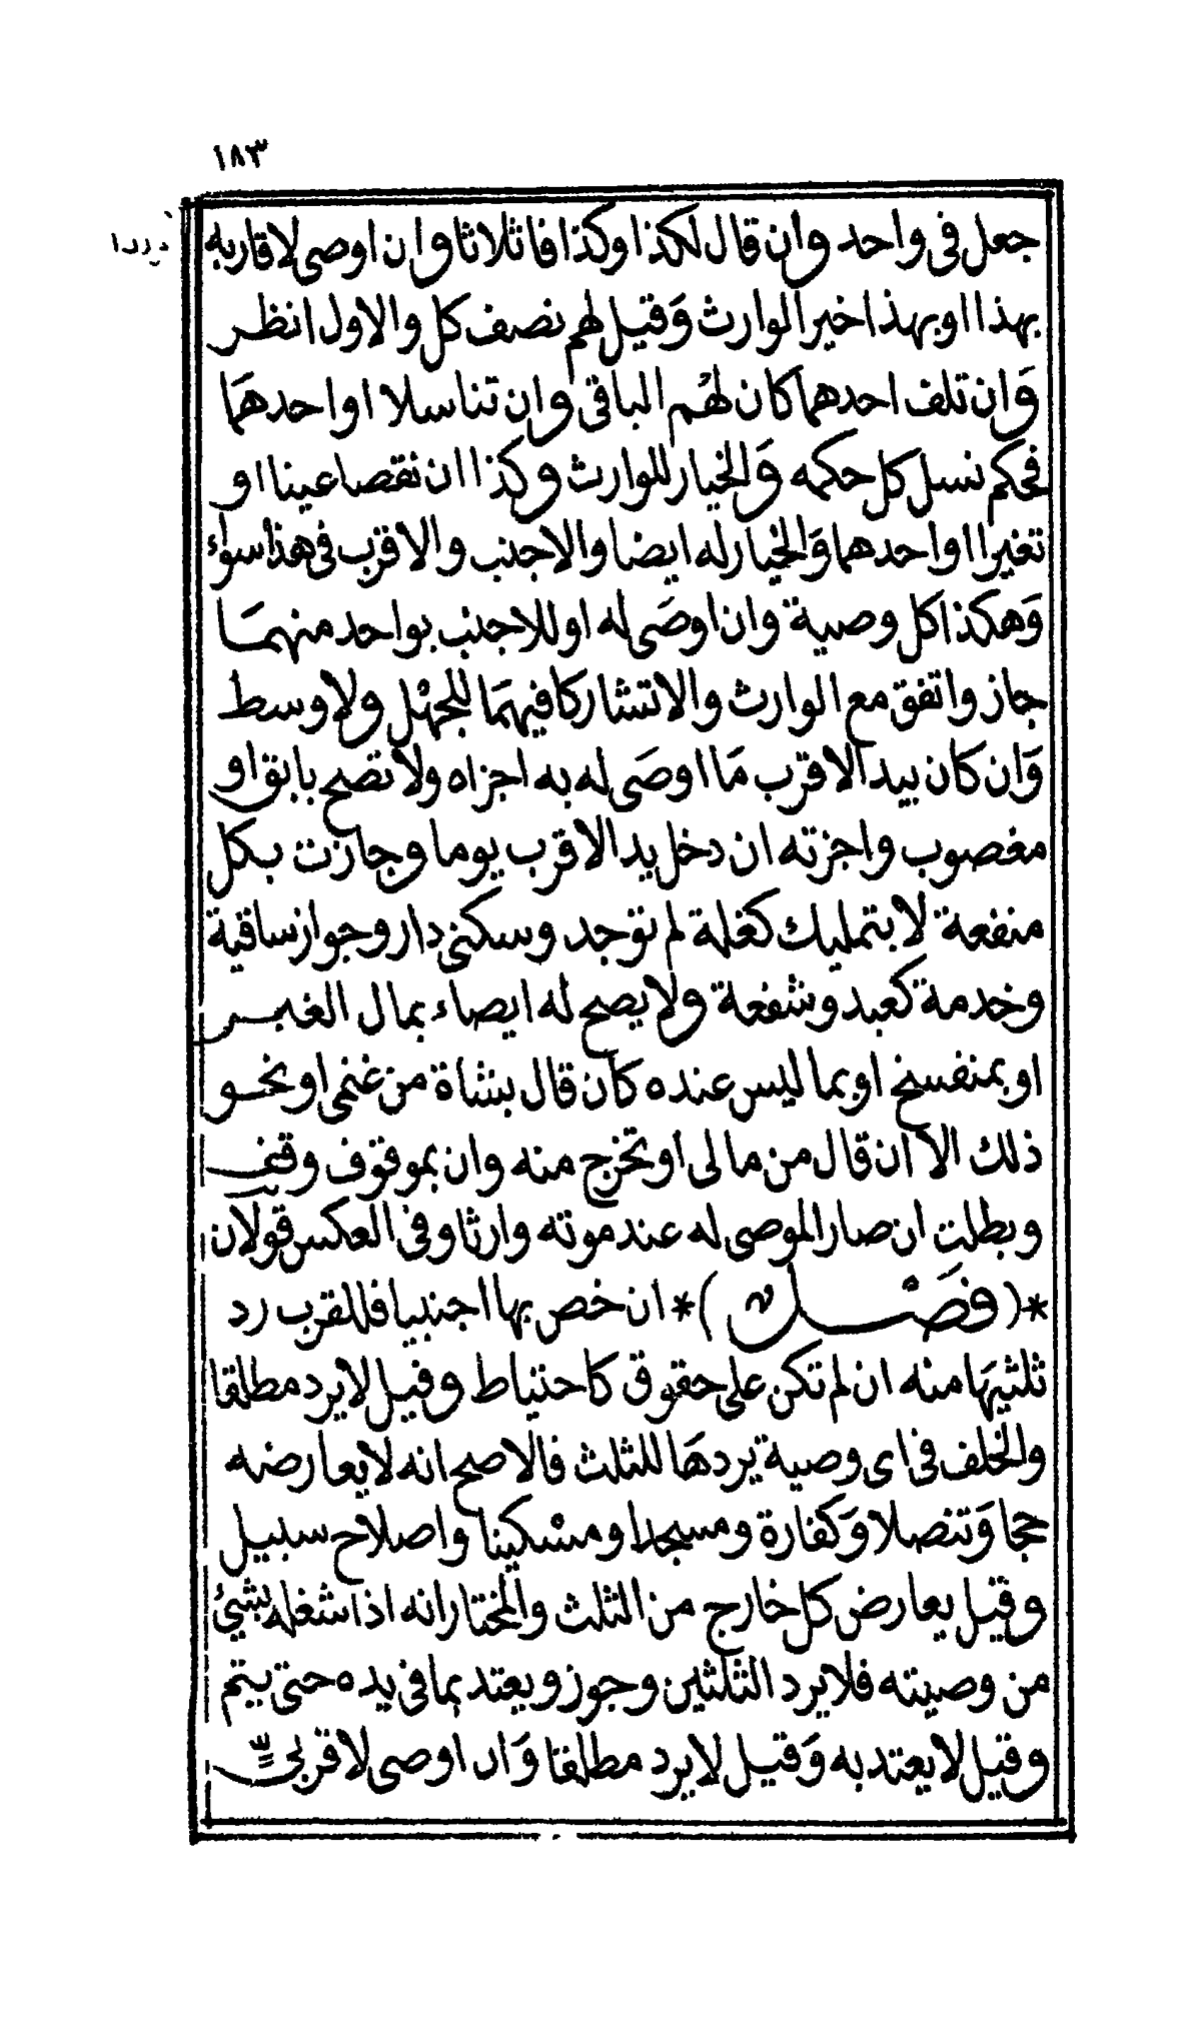 ١٨٣
جعل فى واحد وان قال لكذا وكذا فاثلاثا وان اوصى لاقاربه
بهذا او بهذا اخير الوارث وَقيل لهم نصف كل والاول انظر
وَان تلف احدهما كان لهُم الباقى وان تناسلا او احدهمَا
فحكم نسل كل حكمه وَالخيار للوارث وكذا ان نقصا عينا او
تغيرا او احدهما وَالخيار له ايضا والاجنب والاقرب فى هذا سواء
وَهكذا كل وصية وان اوصَى له او للاجنب بواحد منهمَا
جاز واتفق مع الوارث والاتشاركا فيهمَا للجهْل ولاوسط
وَان كان بيد الاقرب مَا اوصَى له به اجزاه ولا تصح بابق او
مغصوب واجزته ان دخل يد الاقرب يوما وجازت بكل
منفعة لا بتمليك كغلة لم توجد وسكنى دار وجواز ساقية
وخدمة كعبد وشفعة ولا يصح له ايصاء بمال الغير
او بمنفسخ او بما ليس عنده كان قال بشاة من غنمى او نحو
ذلك الا ان قال من مالى او تخرج منه وان بموقوف وقف
وبطلت ان صار الموصى له عند موته وارثا وفى العكس قولان
*(فصَْل)* ان خص بها اجنبيا فللقرب رد
ثلثيهَا منه ان لم تكن على حقوق كاحتياط وقيل لا يرد مطلقا
والخلف فى اى وصية يردهَا للثلث فالاصح انه لا يعارضه
حجا وَتنصلا وَكفارة ومسجدا ومسْكينا واصلاح سبيل
وقيل يعارض كل خارج من الثلث والمختار انه اذا شغله بشئ
من وصيته فلا يرد الثلثين وجوز ويعتد بما فى يده حتى يتم
وقيل لا يعتد به وَقيل لا يرد مطلقا وَان اوصى لاقربى